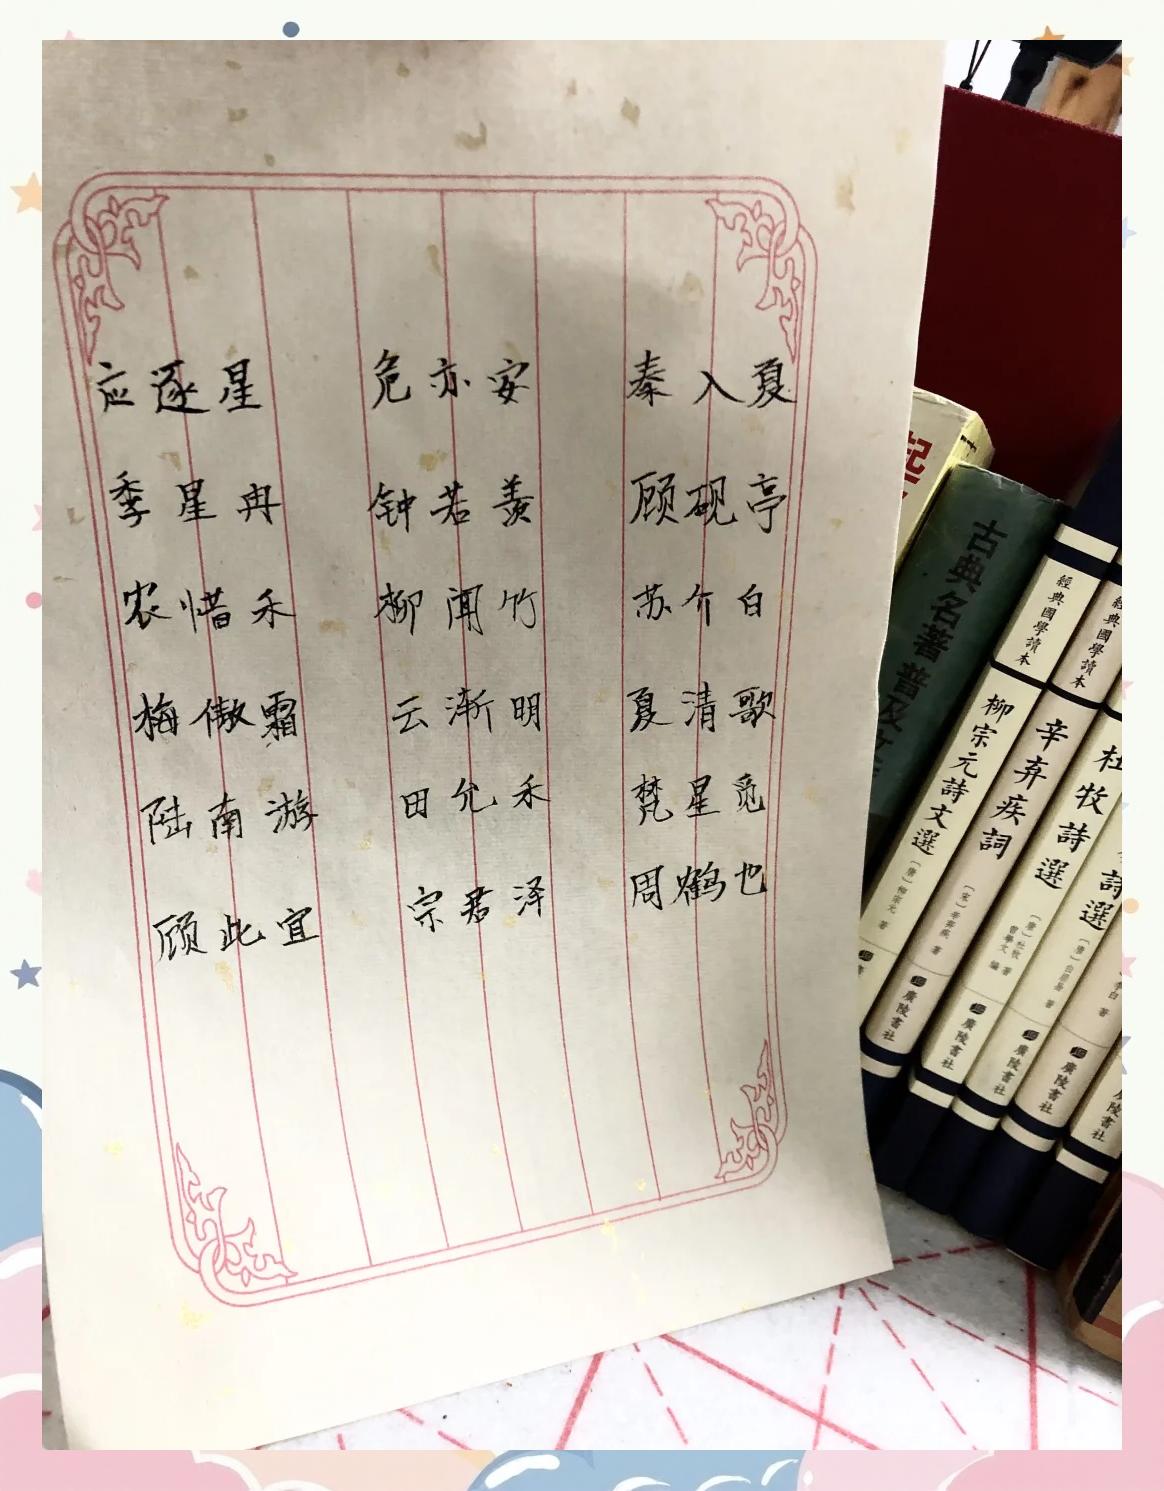 应逐星 危亦安 秦入夏
季星冉 钟若羡 顾砚亭
农惜禾 柳闻竹 苏介白
梅傲霜 云渐明 夏清歌
陆南游 田允禾 梵星觅
顾此宜 宗君泽 周鹤也
起
古典名著普及文
經典國學讀本
柳宗元詩文選
〔唐〕柳宗元 著
廣陵書社
經典國學讀本
辛弃疾詞
〔宋〕辛弃疾 著
廣陵書社
杜牧詩選
〔唐〕杜牧 著
曹學文 編
廣陵書社
詩選
廣陵書社
李白 著
廣陵書社